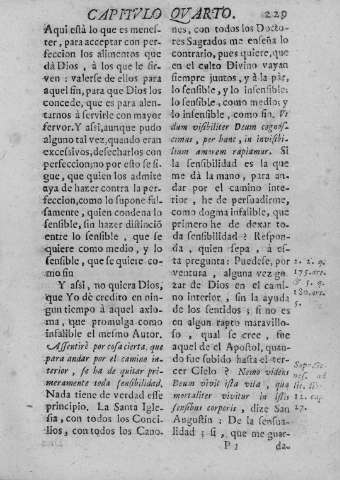 CAPITVLO QVARTO. 229
Aqui està lo que es menes-
ter, para acceptar con per-
feccion los alimentos que
dá Dios, à los que le sir-
ven: valerse de ellos para
aquel fin, para que Dios los
concede, que es para alen-
tarnos à servirle con mayor
fervor. Y assi, aunque pudo
alguno tal vez, quando eran
excessivos, desecharlos con
perfeccion; no por esto se si-
gue, que quien los admite
aya de hazer contra la per-
feccion, como lo supone fal-
samente, quien condena lo
sensible, sin hazer distinciõ
entre lo sensible, que se
quiere como medio, y lo
sensible, que se quiere co-
mo fin
Y assi, no quiera Dios,
que Yo dè credito en nin-
gun tiempo à aquel axio-
ma, que promulga como
infalible el mesmo Autor.
Assentirè por cosa cierta, que
para andar por el camino in-
terior, se ha de quitar pri-
meramente toda sensibilidad.
Nada tiene de verdad esse
principio. La Santa Igle-
sia, con todos los Conci-
lios, con todos los Cano-
nes, con todos los Docto-
res Sagrados me enseña lo
contrario, pues quiere, que
en el culto Divino vayan
siempre juntos, y à la par,
lo sensible, y lo insensible:
lo sensible, como medio; y
lo insensible, como fin. Vt
dum visibiliter Deum cognos-
cimus, per hunc, in invisibi-
lium amorem rapiamur. Si
la sensibilidad es la que
me dà la mano, para an-
dar por el camino inte-
rior, he de persuadirme,
como dogma infalible, que
primero he de dexar to-
da sensibilidad? Respon-
da, quien sepa, à es-
ta pregunta: Puedese, por
ventura, alguna vez go-
zar de Dios en el cami-
no interior, sin la ayuda
de los sentidos; si no es
en algun rapto maravillo-
so, qual se cree, fue
aquel de el Apostol, quan-
do fue subido hasta el ter-
cer Cielo? Nemo videns
Deum vivit ista vita, qua
mortaliter vivitur in istis
sensibus corporis, dize San
Augustin: De la sensua-
lidad; si, que me guar-
P 3 da-
2. 2. q.
175. art.
5. q.
180. art.
5.
lit. lib.
12. cap.
27.